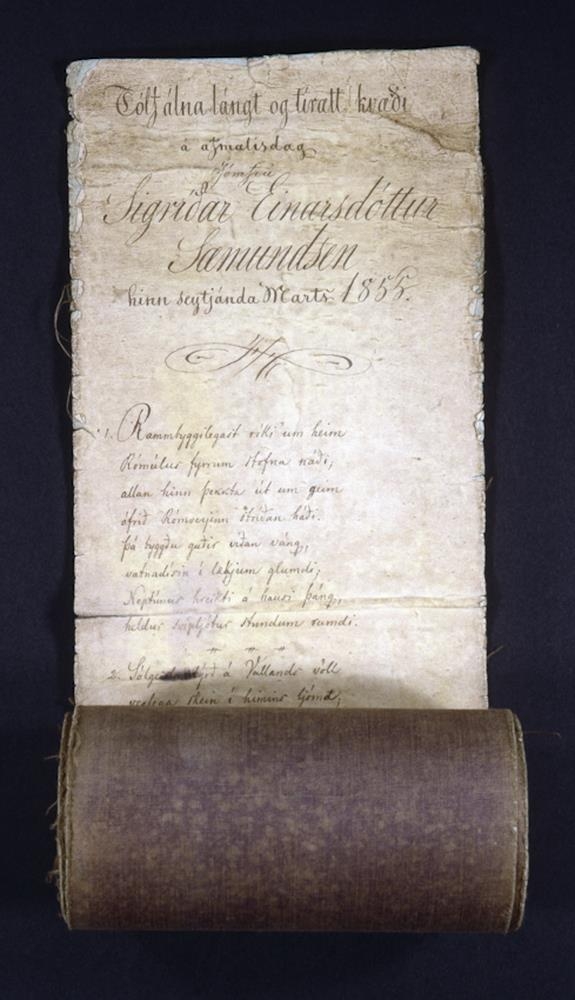 Tólf álna lángt og tírætt kvæði
á afmælisdag
Jómfrú
Sigríðar Einarsdóttur
Sæmundsen
hinn seytjánda Marts 1855.
1. Rammbyggilegast ríki um heim
Rómúlus fyrrum stofna náði;
allan hinn þekkta út um geim
ófrið Rómverjinn stríðan háði.
Þá byggðu guðir víðan váng,
vatnadísin í lækjum glumdi;
Neptúnus hreikti á hausi þáng,
heldur svipljótur stundum rumdi.
2. á Vallands völl
veglega skein í himins ljóma;